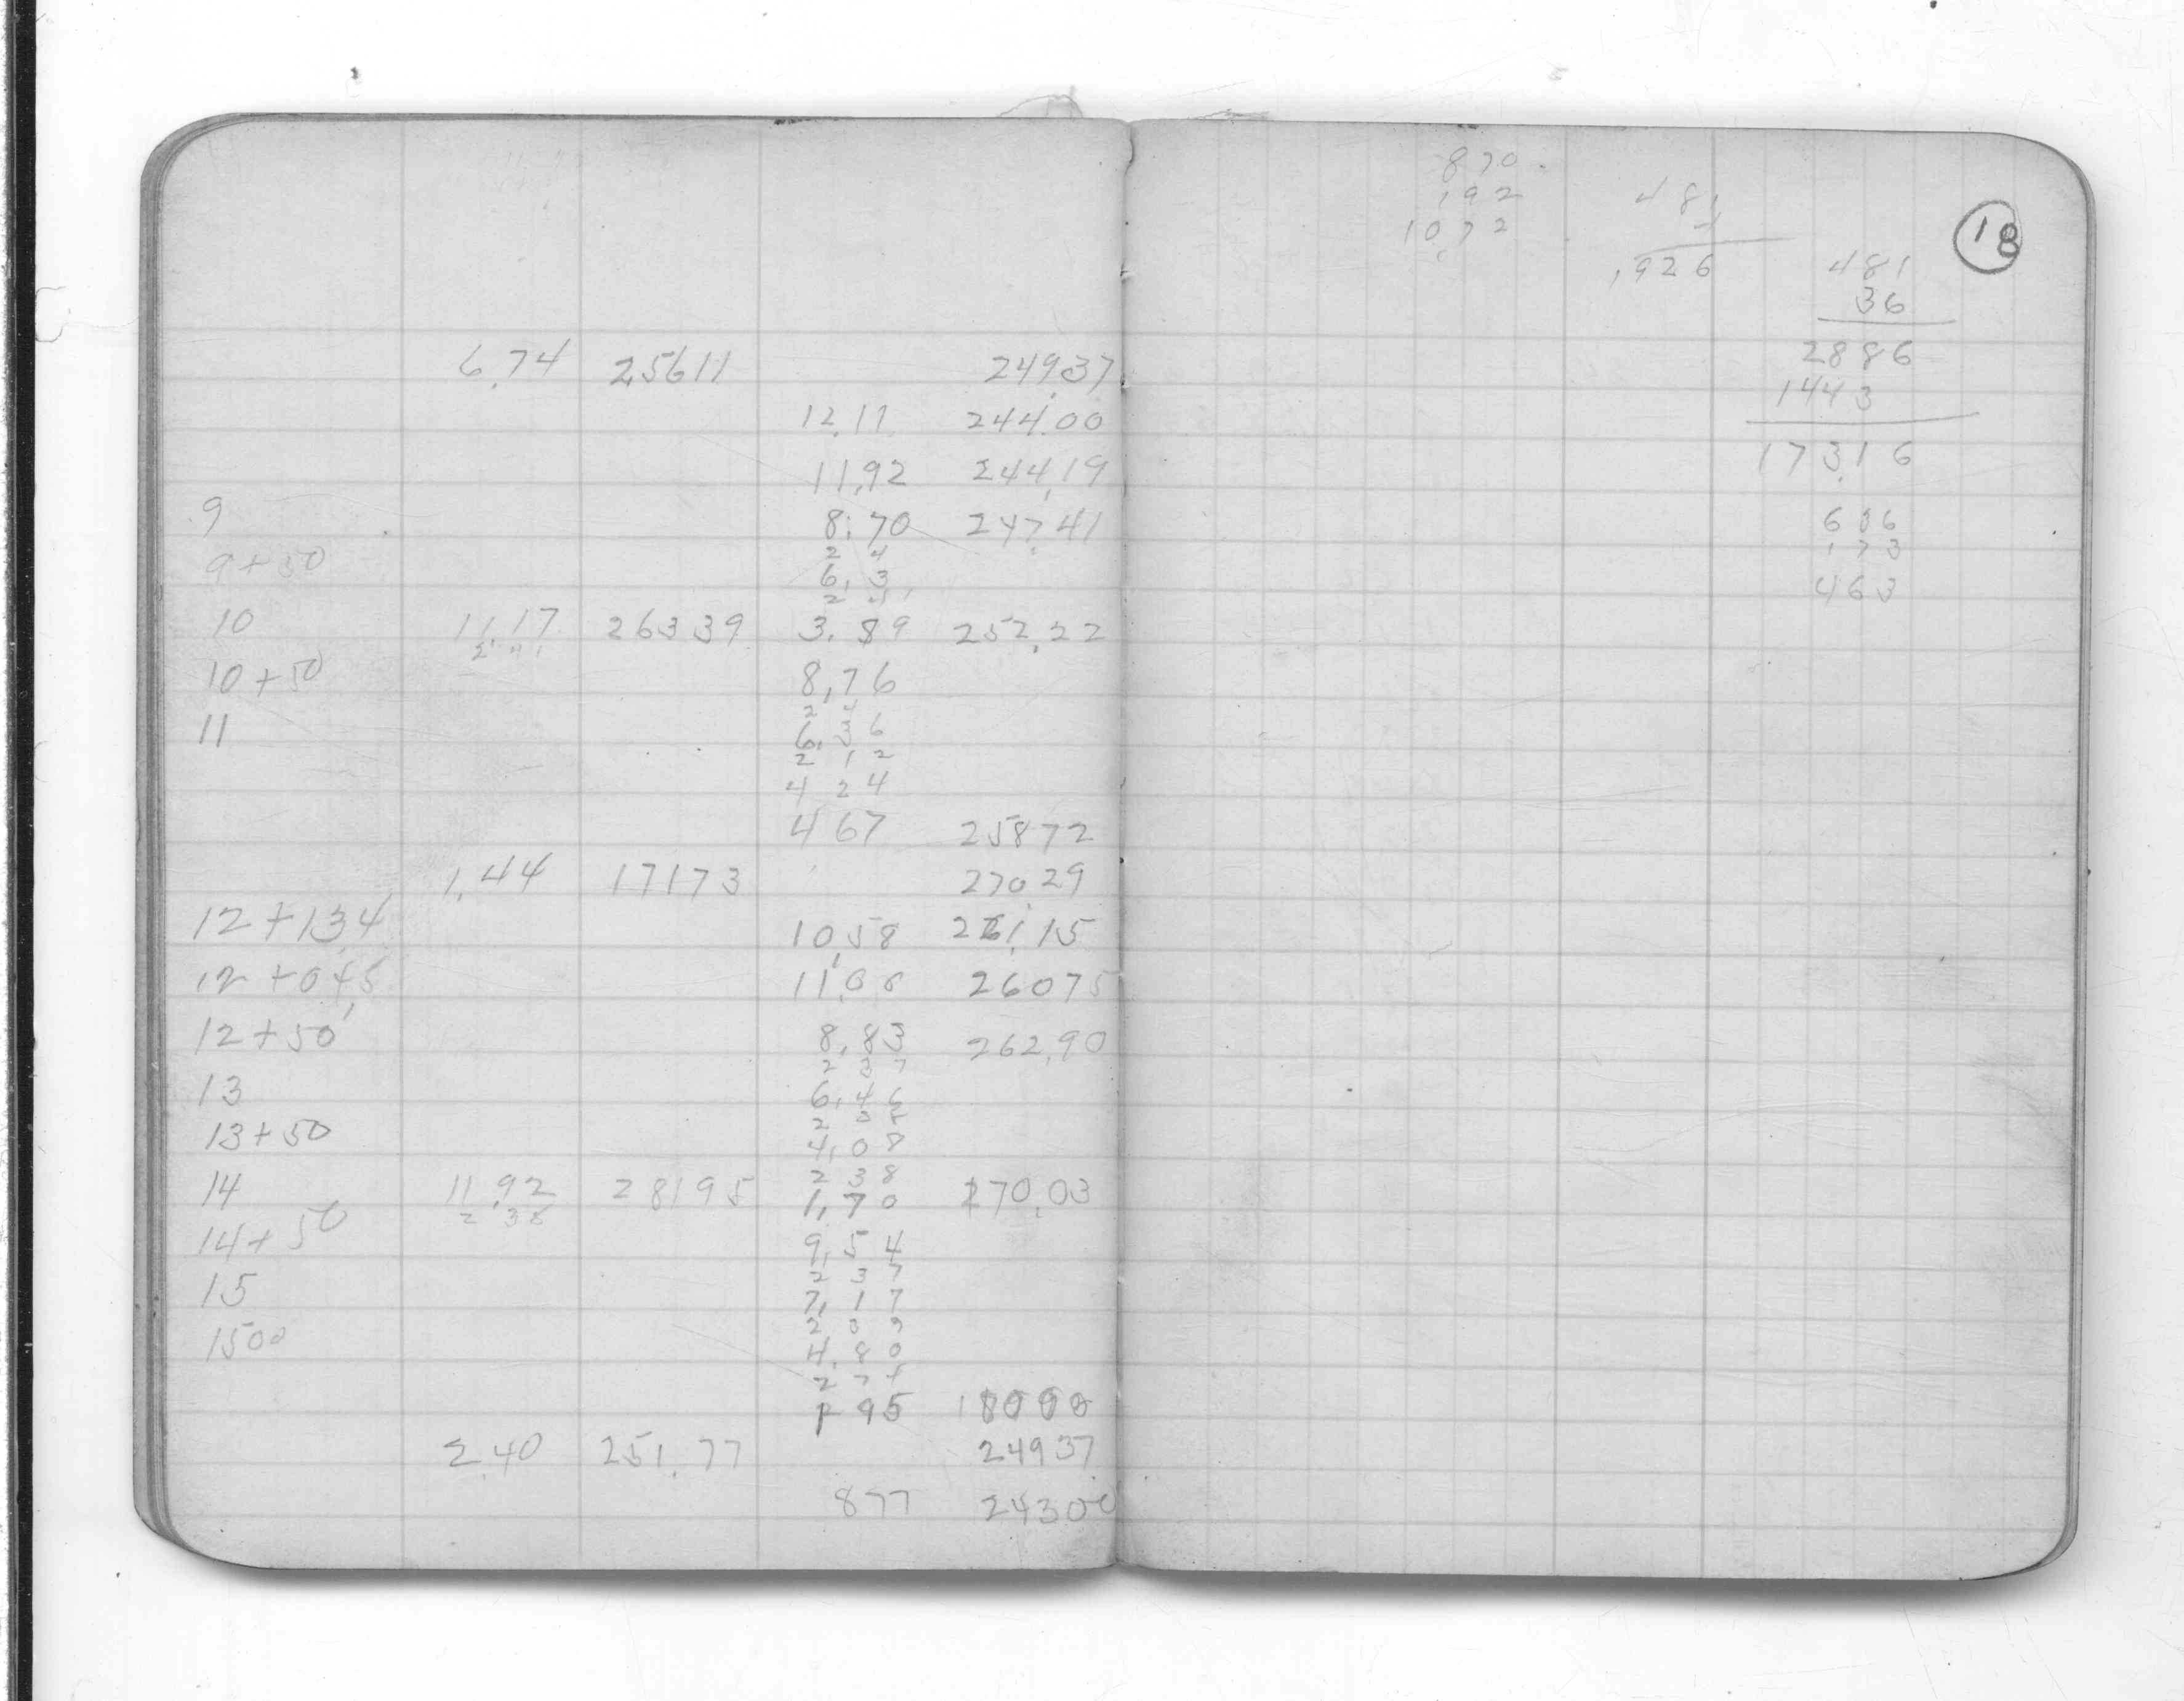 6.74 25611 24937
12.11 244.00
11.92 244.19
9 8.70 247.41
9+50 2 4
6, 3
2 4
10 11.17 26339 3.89 252.22
2 4 1
10+50 8,76
2 4
11 6.36
2 1 2
4 24
467 25872
1.44 17173 270.29
12+13.4 10.58 261.15
12+045 11.08... 26075
12+50 8.83 262.90
2 3 7
13 6.46
2 3 8
13+50 4.08
2 3 8
14 11.92 28195 1.70 270.03
2 38
14+50 9.54
2 3 7
15 7.17
2 3 7
1500 4.80
95 18000
2.40 251.77 24937
877 24300
870
192
1072
481
,926
18
481
36
2886
1443
173.16
173
463